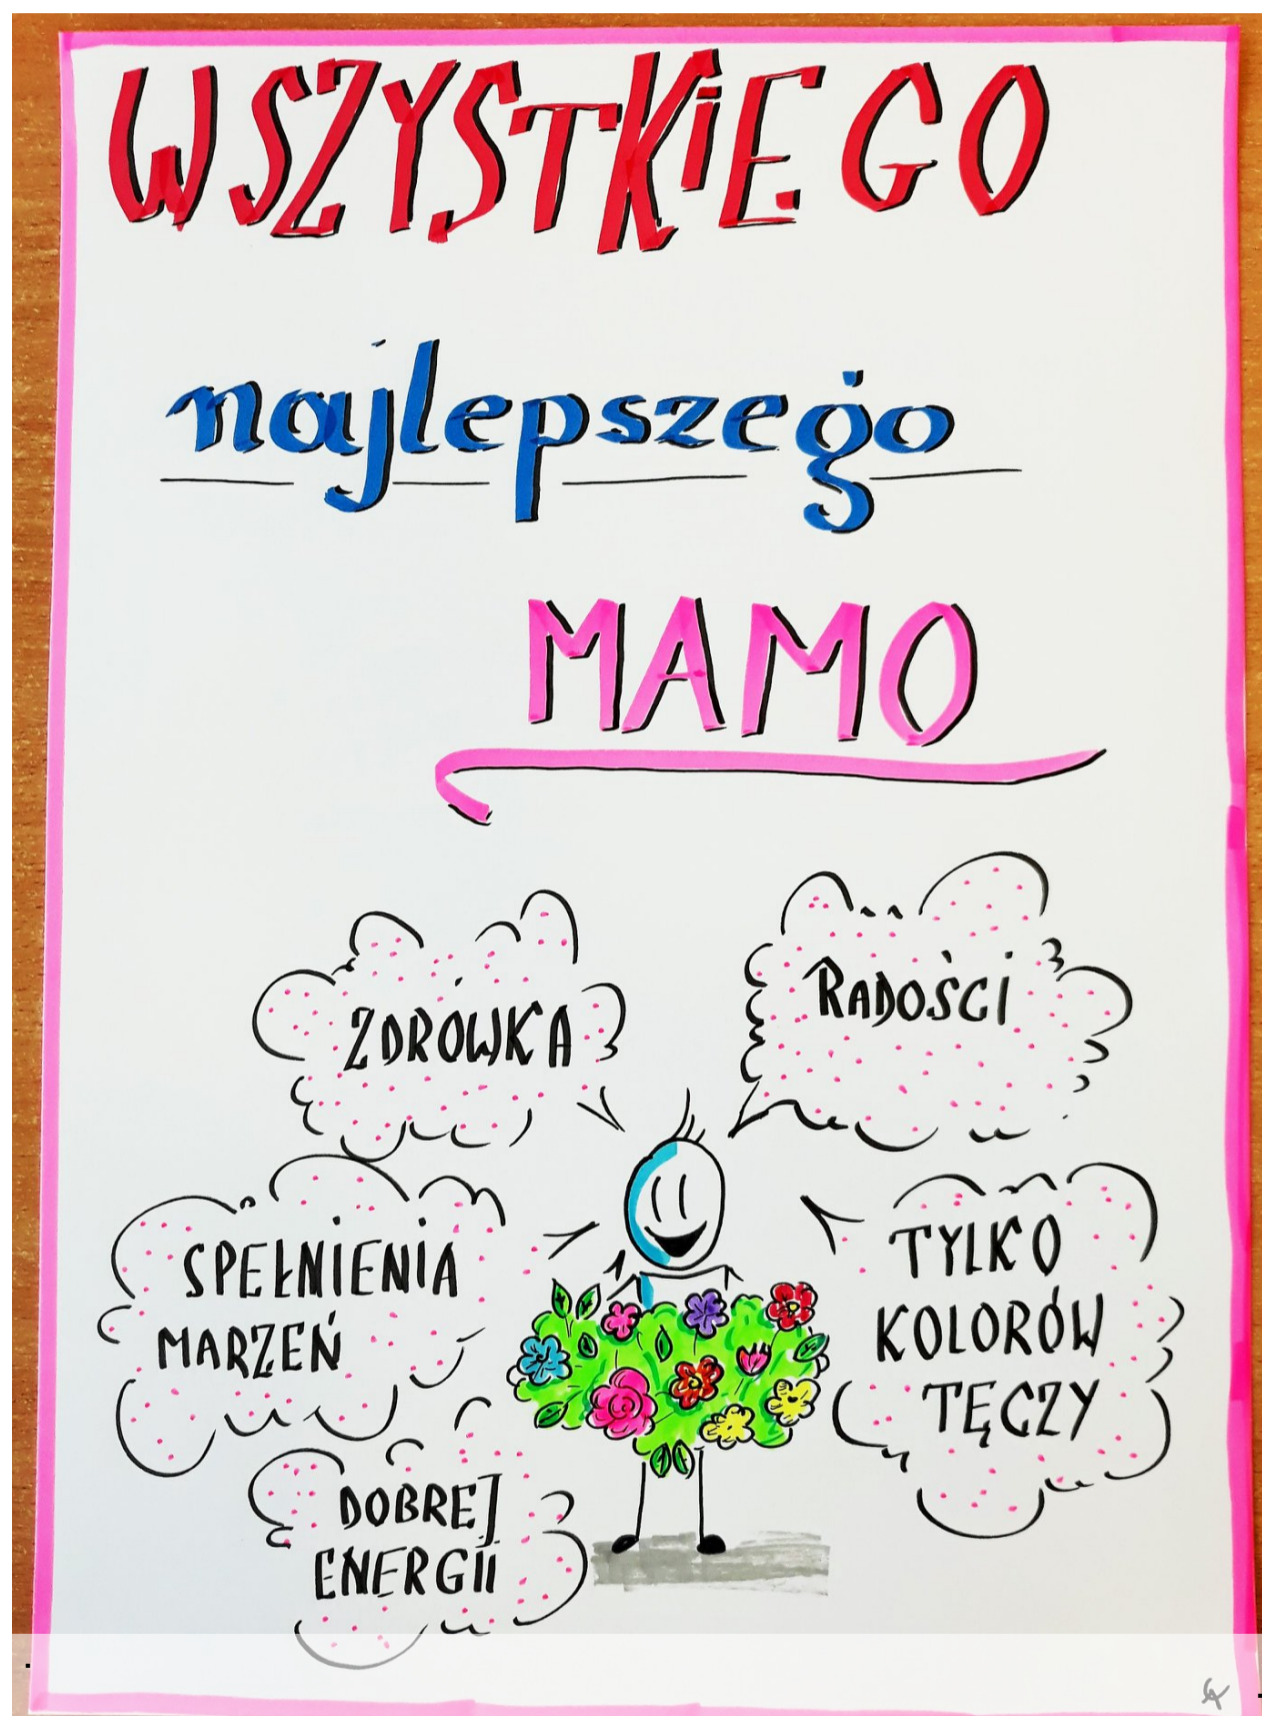 WSZYSTKiEGO
najlepszego
MAMO
ZDRÓWKA
RADOŚCI
SPEŁNIENIA
MARZEŃ
TYLKO
KOLORÓW
TĘCZY
DOBREJ
ENERGII